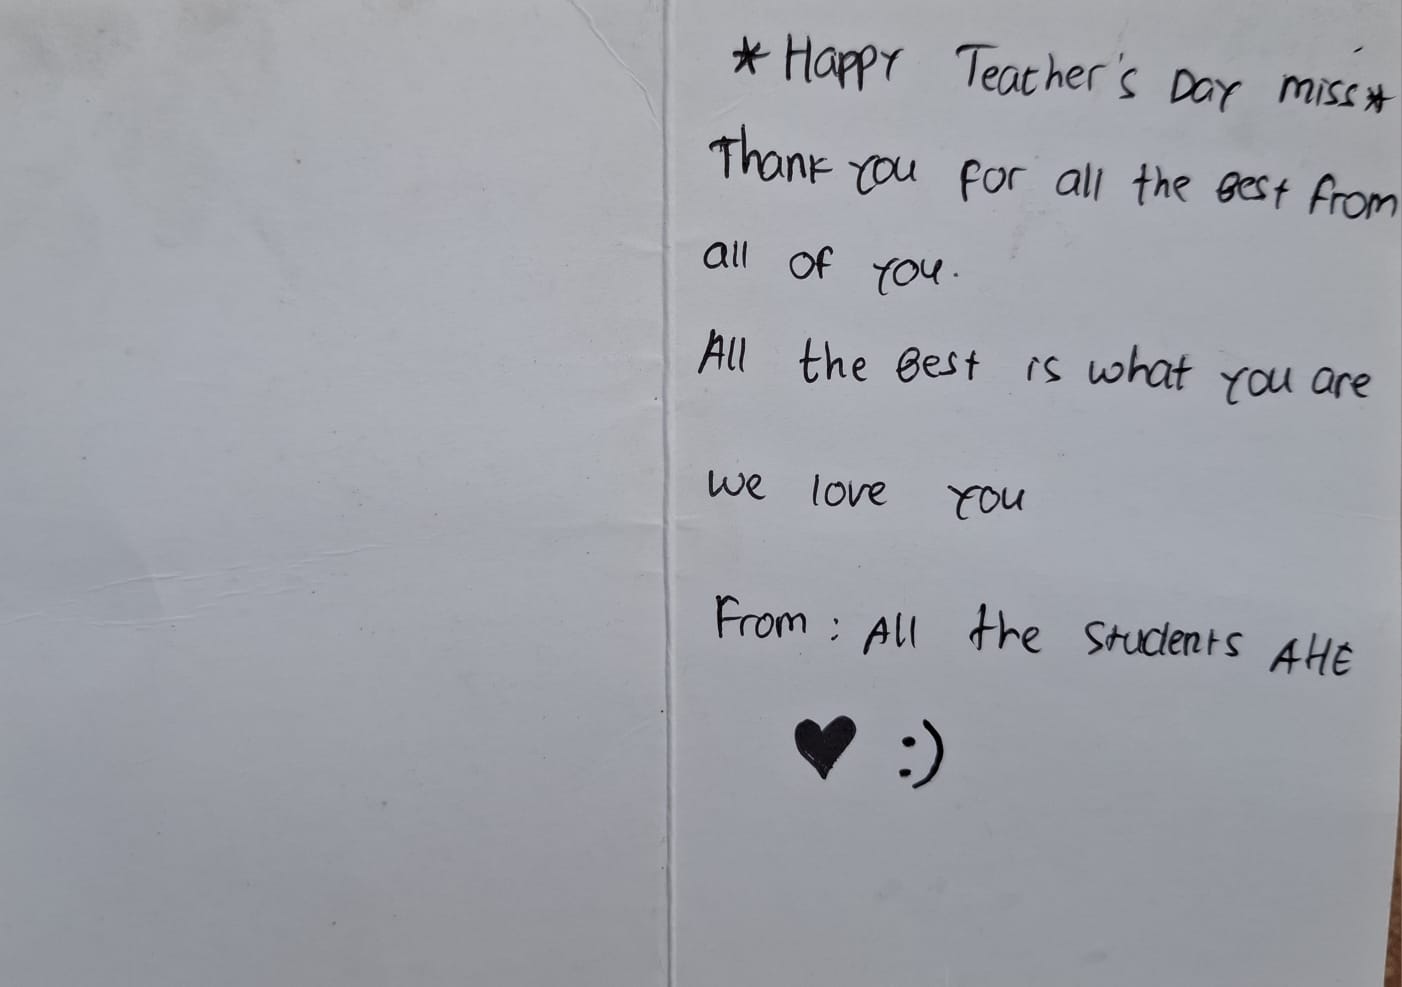 *Happy Teacher's Day miss*
Thank you for all the Best from
all of you.
All the Best is what you are
we love you
From: All the students AHE
♥ :)